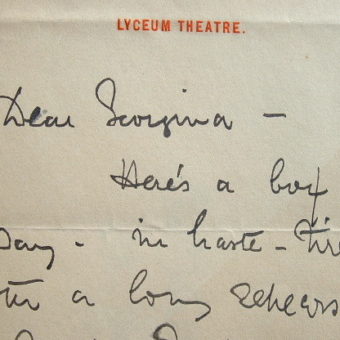 LYCEUM THEATRE.
Dear Georgina —
Here's a box
day - in haste - tire
after a long rehears